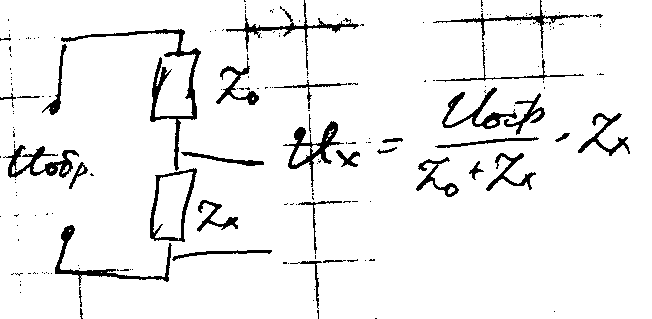 Z₀
Uобр.
Zx
Ux = Uобр / (Z₀ + Zx) · Zx